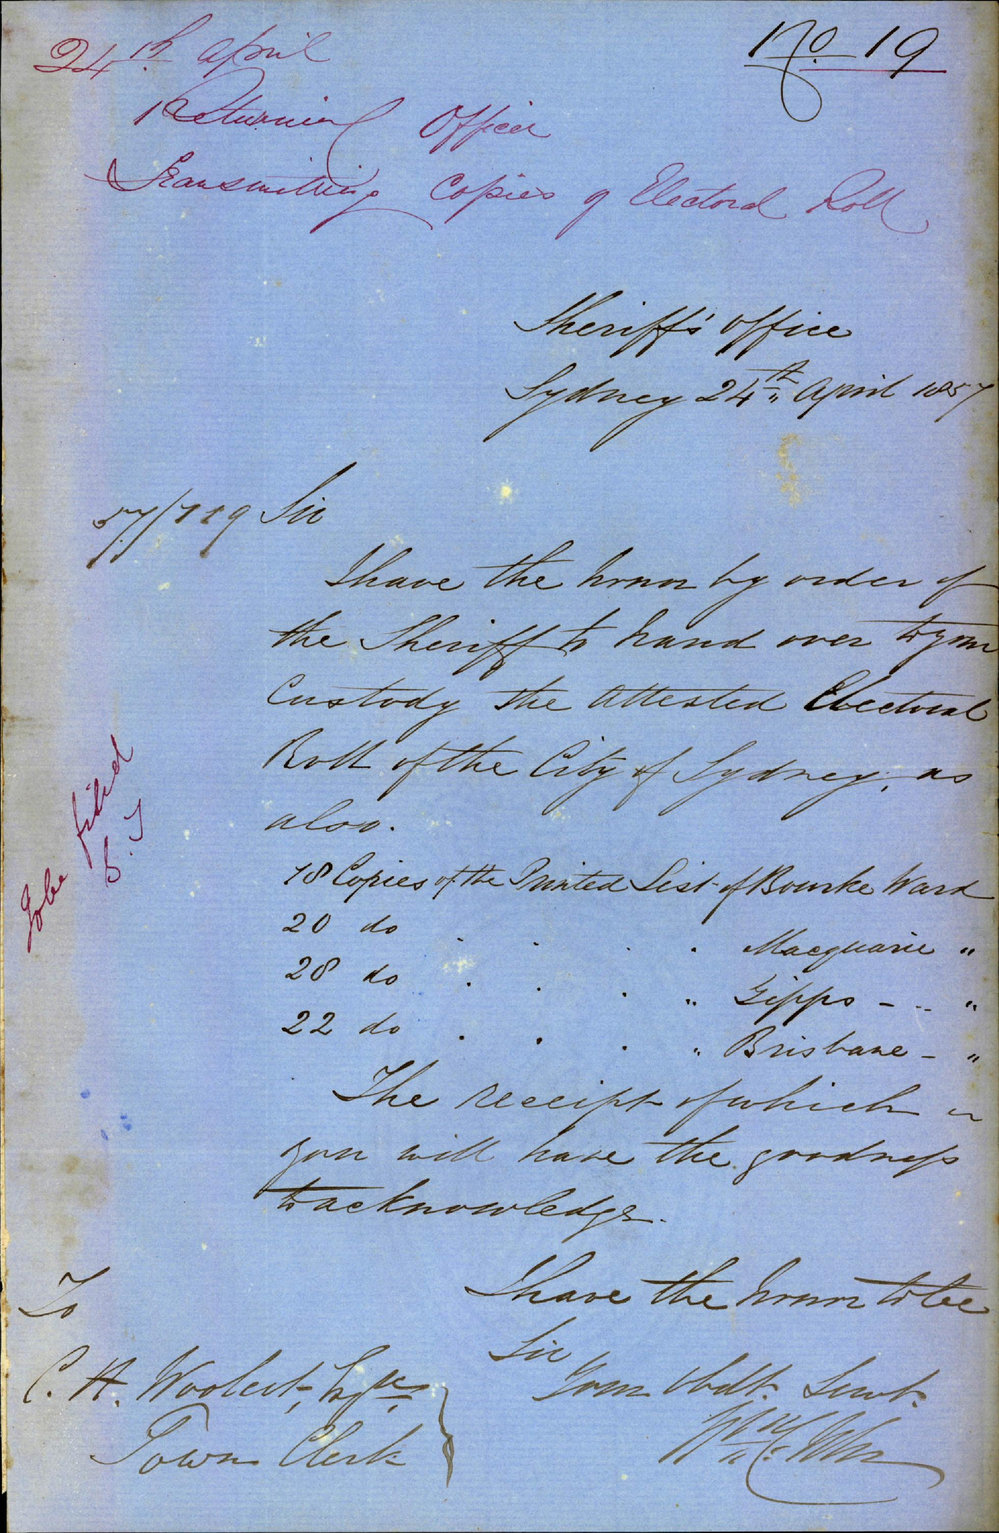 No. 19
24th April
Returning Officer
Transmitting Copies of Electoral Roll
Sheriff's Office
Sydney 24th April 1857
57/119 Sir
I have the honor by order of
the Sheriff to hand over to your
Custody the attested Electoral
Roll of the City of Sydney, as
also.
18 Copies of the Printed List of Bourke Ward
20 do . . . . Macquarie "
28 do . . . " Gipps - - "
22 do . . . " Brisbane - "
The receipt of which
you will have the goodness
to acknowledge.
I have the honor to be
Sir
Your Obdt. Servt.
To
C. H. Woolcott, Esqre.
Town Clerk
To be filed